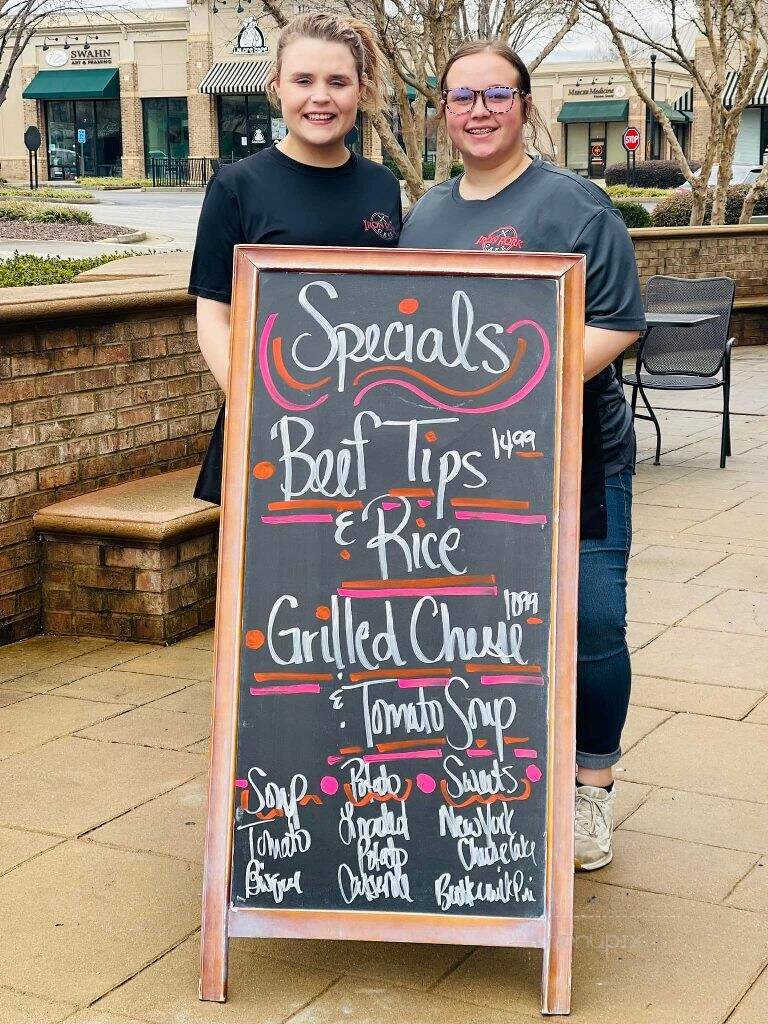 SWAHN
ART & FRAMING
STOP
IRON FORK
IRON FORK
Specials
Beef Tips 14.99
& Rice
Grilled Cheese 10.99
& Tomato Soup
Soup Potato Sweets
Tomato Loaded New York
Bisque Potato Cheese Cake
Casserole Buttermilk Pie
menupix